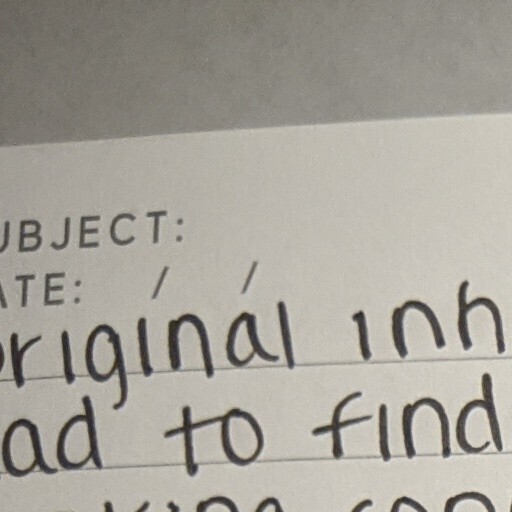 UBJECT:
ATE: / /
original inh
ad to find